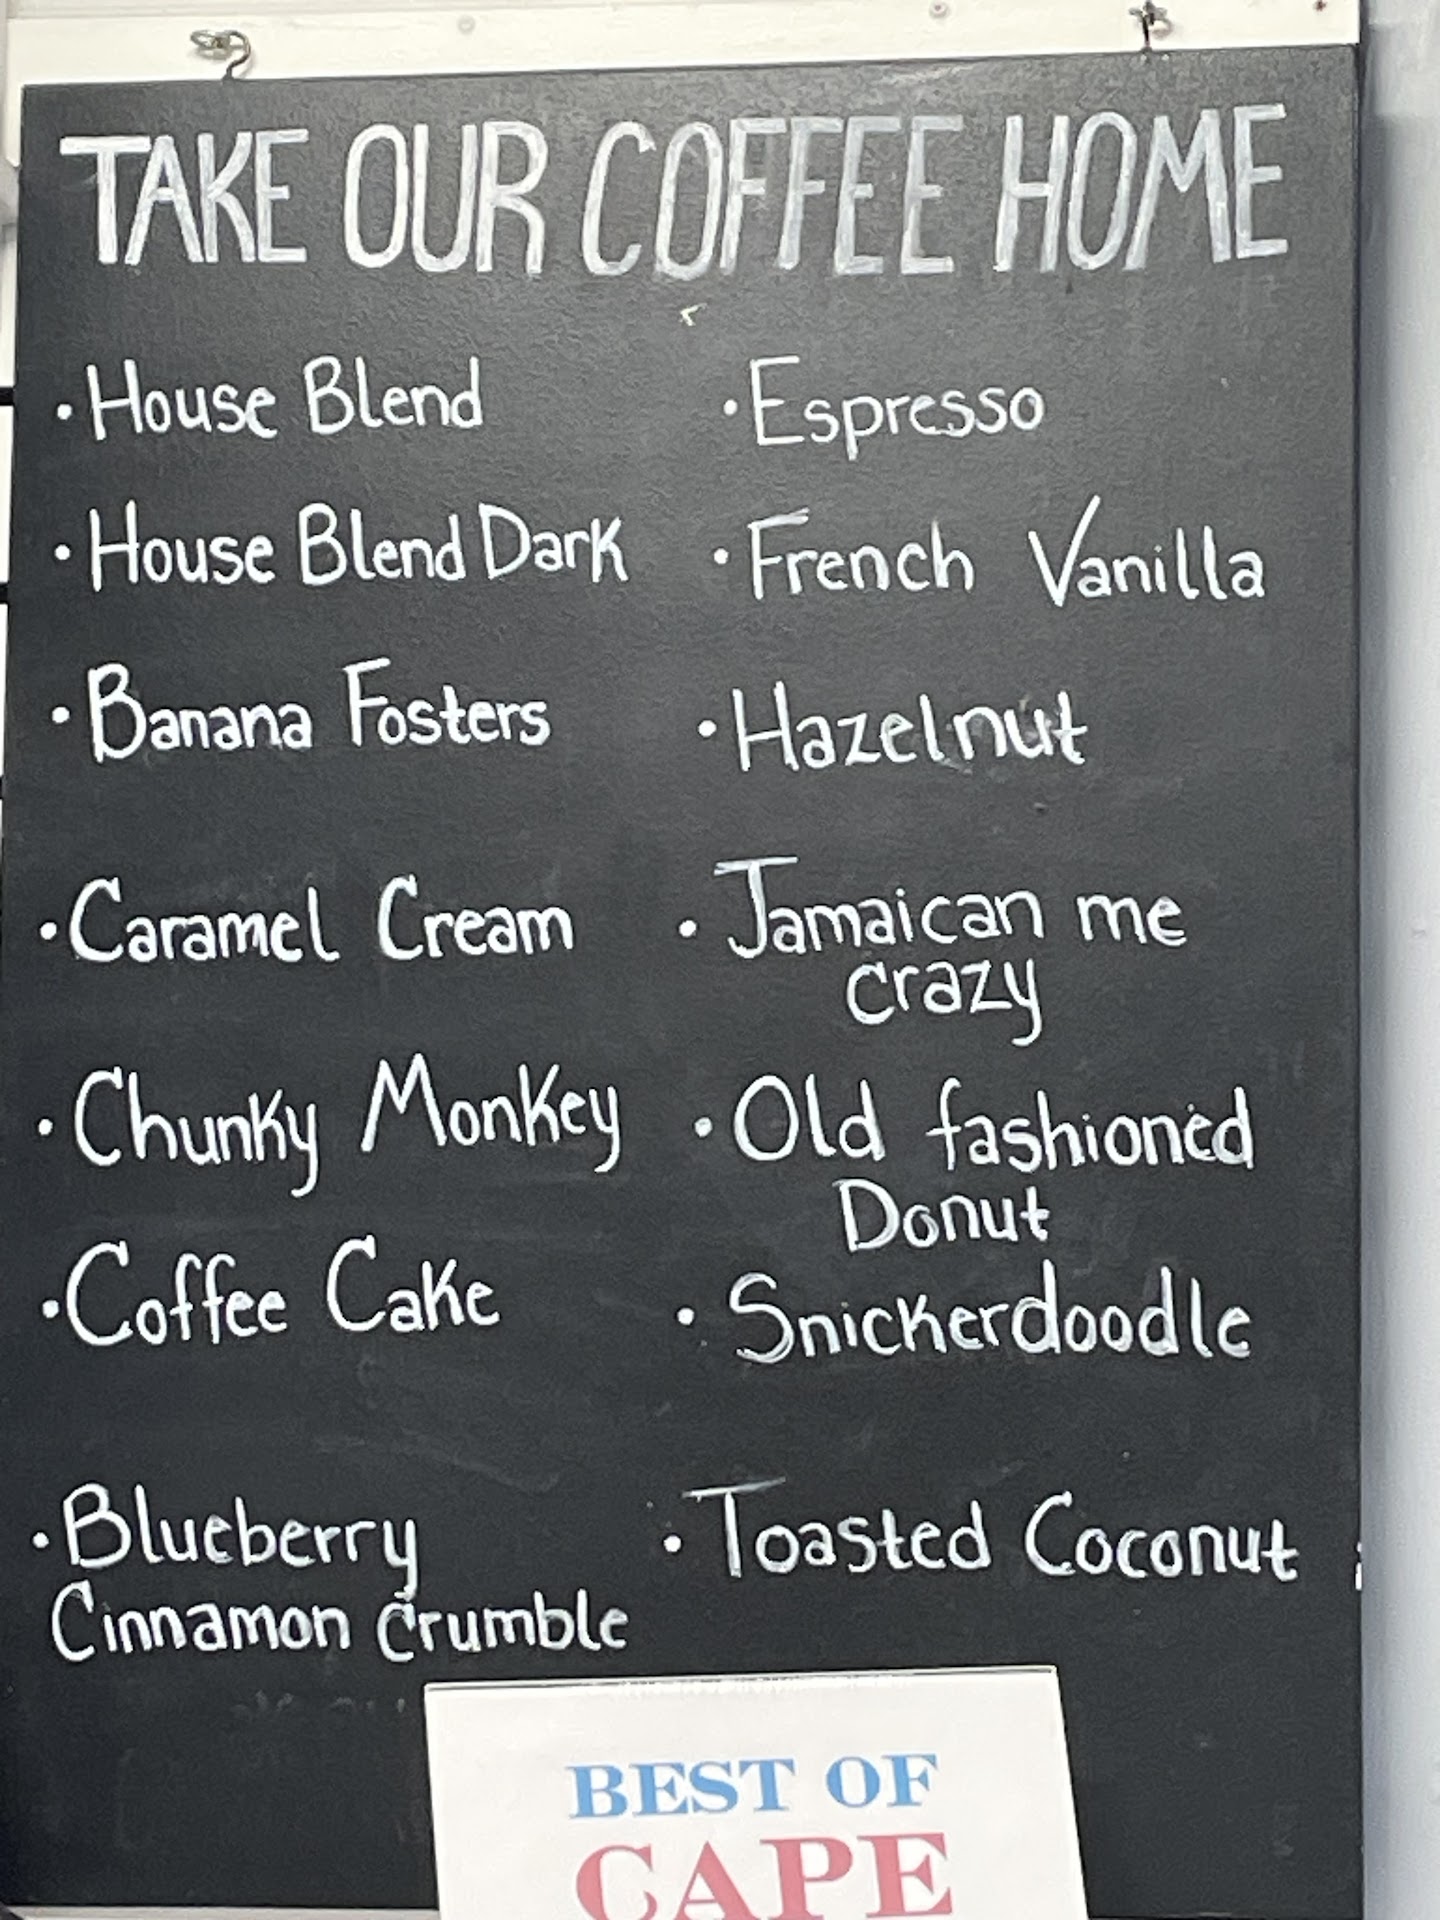 TAKE OUR COFFEE HOME
• House Blend
• House Blend Dark
• Banana Fosters
• Caramel Cream
• Chunky Monkey
• Coffee Cake
• Blueberry
Cinnamon Crumble
• Espresso
• French Vanilla
• Hazelnut
• Jamaican me
crazy
• Old fashioned
Donut
• Snickerdoodle
• Toasted Coconut
BEST OF
CAPE